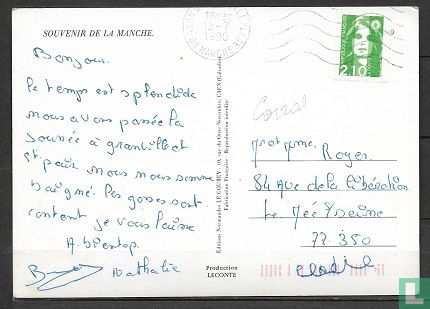 SOUVENIR DE LA MANCHE.
Bonjour
le temps est splendide
nous avons passée la
journée à granville et
st pair nous nous somme
baigné. les gosses sont
content je vous laisse
A bientop.
Nathalie
Editions Normandes LE GOUBEY - 10, rue du Onze Novembre, CAEN (Calvados)
Fabrication Française - Reproduction interdite
Production
LECONTE
1990
MANCHE
2,10
Corral
Royer
84 Avue de la libération
Le Mée S/seine
77.350